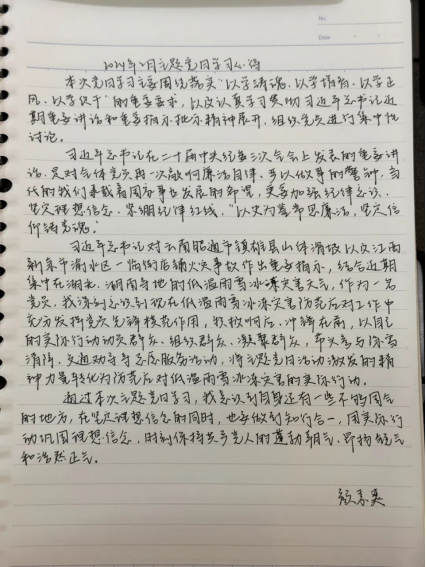 No.
Date
2024年2月主题党日学习心得
本次党日学习主要围绕落实“以学铸魂、以学增智、以学正
风、以学促干”的重要要求，以及认真学习贯彻习近平总书记近
期重要讲话和重要指示批示精神展开，组织党员进行集中性
讨论。
习近平总书记在二十届中央纪委三次全会上发表的重要讲
话，是对全体党员再一次敲响廉洁自律、干净做事的警钟，当
代的我们承载着国家事业发展的希望，更要加强纪律意识、
坚定理想信念、紧绷纪律红线，“以史为鉴常思廉洁，坚定信
仰铸忠魂。”
习近平总书记对云南昭通市镇雄县山体滑坡以及江西
新余市渝水区一临街店铺火灾事故作出重要指示，结合近期
集中在湖北、湖南等地的低温雨雪冰冻灾害天气，作为一名
党员，我深刻意识到现在低温雨雪冰冻灾害防范应对工作中
充分发挥党员先锋模范作用，积极响应、冲锋在前，以自己
的实际行动动员群众、组织群众、凝聚群众，带头参与除雪
清障、交通劝导等志愿服务活动，将主题党日活动激发的精
神力量转化为防范应对低温雨雪冰冻灾害的实际行动。
通过本次主题党日学习，我意识到自身还有一些不够周全
的地方，在坚定理想信念的同时，也要做到知行合一，用实际行
动巩固理想信念，时刻保持共产党人的蓬勃朝气、昂扬锐气
和浩然正气。